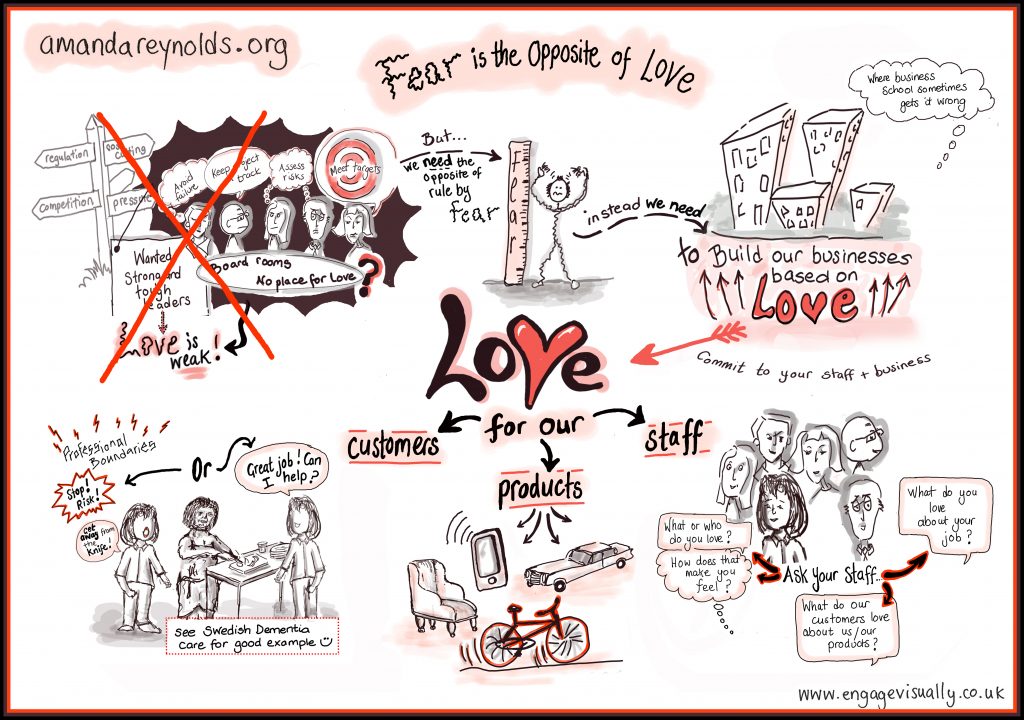 amandareynolds.org
Fear is the Opposite of Love
regulation
competition
Avoid
failure
Assess
risks
Meet targets
Wanted
Strong and
tough
leaders
Board rooms
No place for Love
?
Love is
weak!
But...
we need the
opposite of
rule by
fear
fear
instead we need
Where business
school sometimes
gets it wrong
to Build our businesses
based on
Love
Commit to your staff + business
Love
for our
customers
products
staff
Professional
Boundaries
Stop!
Risk!
Get
away from
the
knife!
Or
Great job! Can
I help?
see Swedish Dementia
care for good example
What or who
do you love?
How does that
make you
feel?
Ask Your Staff...
What do you
love
about your
job?
What do our
customers love
about us/our
products?
www.engagevisually.co.uk